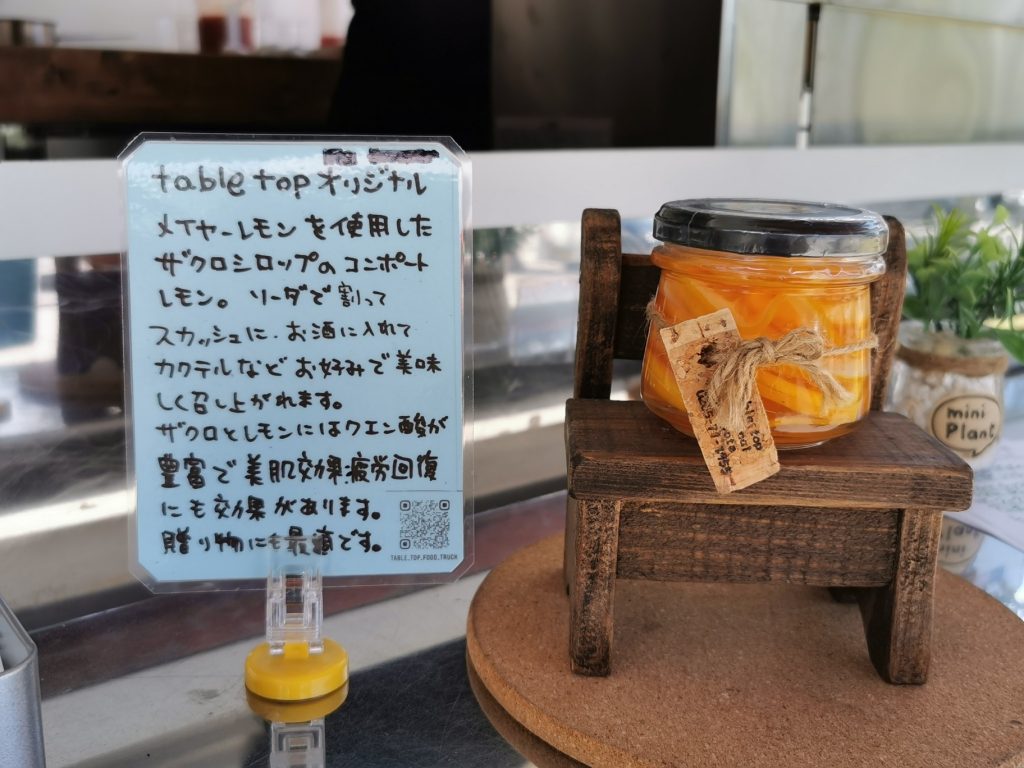 table top オリジナル
メイヤーレモンを使用した
ザクロシロップのコンポート
レモン。ソーダで割って
スカッシュに、お酒に入れて
カクテルなどお好みで美味
しく召し上がれます。
ザクロとレモンにはクエン酸が
豊富で美肌効果疲労回復
にも効果があります。
贈り物にも最適です。
TABLE_TOP.FOOD.TRUCK
mini
Plant